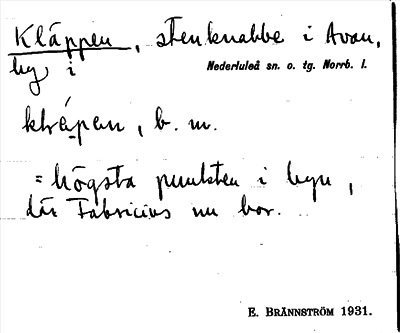 Kläppen, stenknabbe i Avan,
by i Nederluleå sn. o. tg. Norrb. l.
kläpen, b. m.
= högsta punkten i byn,
där Fabricius nu bor.
E. BRÄNNSTRÖM 1931.